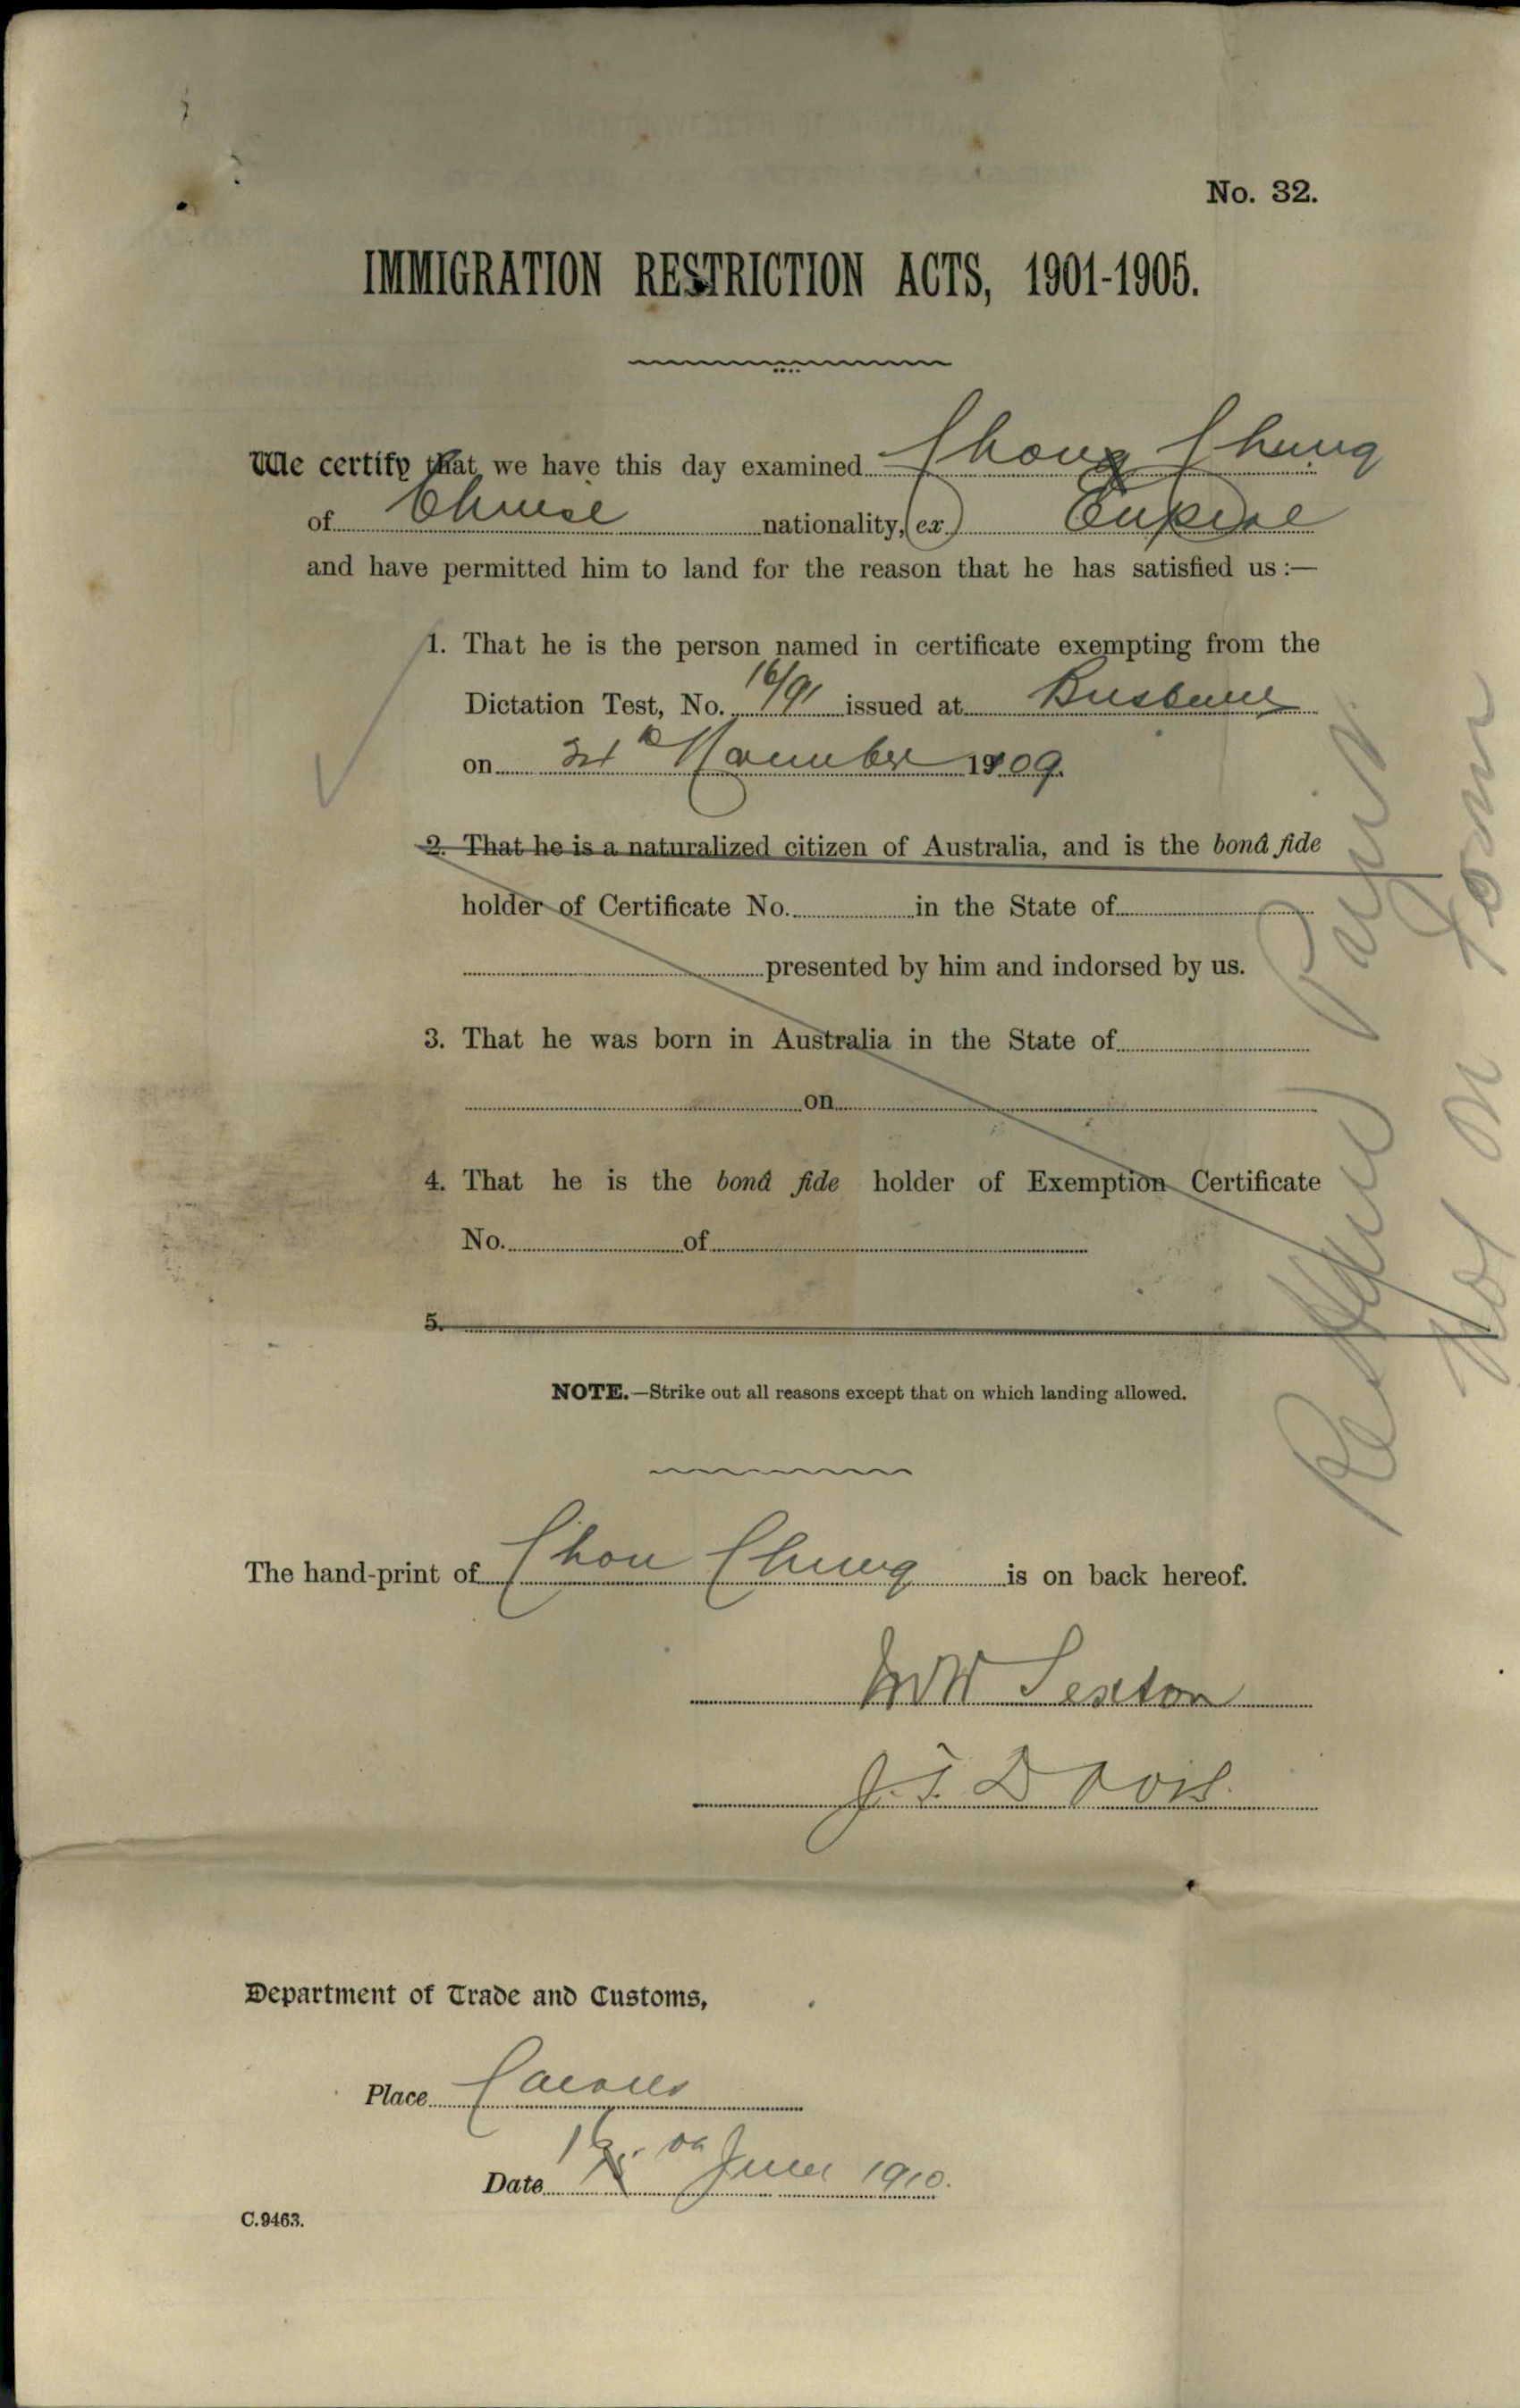 No. 32.
IMMIGRATION RESTRICTION ACTS, 1901-1905.
We certify that we have this day examined Chong Chung
of Chinese nationality, (ex.) Empire
and have permitted him to land for the reason that he has satisfied us:—
1. That he is the person named in certificate exempting from the
Dictation Test, No. 16/91 issued at Brisbane
on November 1909.
2. That he is a naturalized citizen of Australia, and is the bonâ fide
holder of Certificate No. in the State of
presented by him and indorsed by us.
3. That he was born in Australia in the State of
on
4. That he is the bonâ fide holder of Exemption Certificate
No. of
5.
NOTE.—Strike out all reasons except that on which landing allowed.
The hand-print of Chou Chung is on back hereof.
Sexton
J. T. Davis.
Department of Trade and Customs,
Place Cairns
Date June 1910.
C.9463.
Not on Form